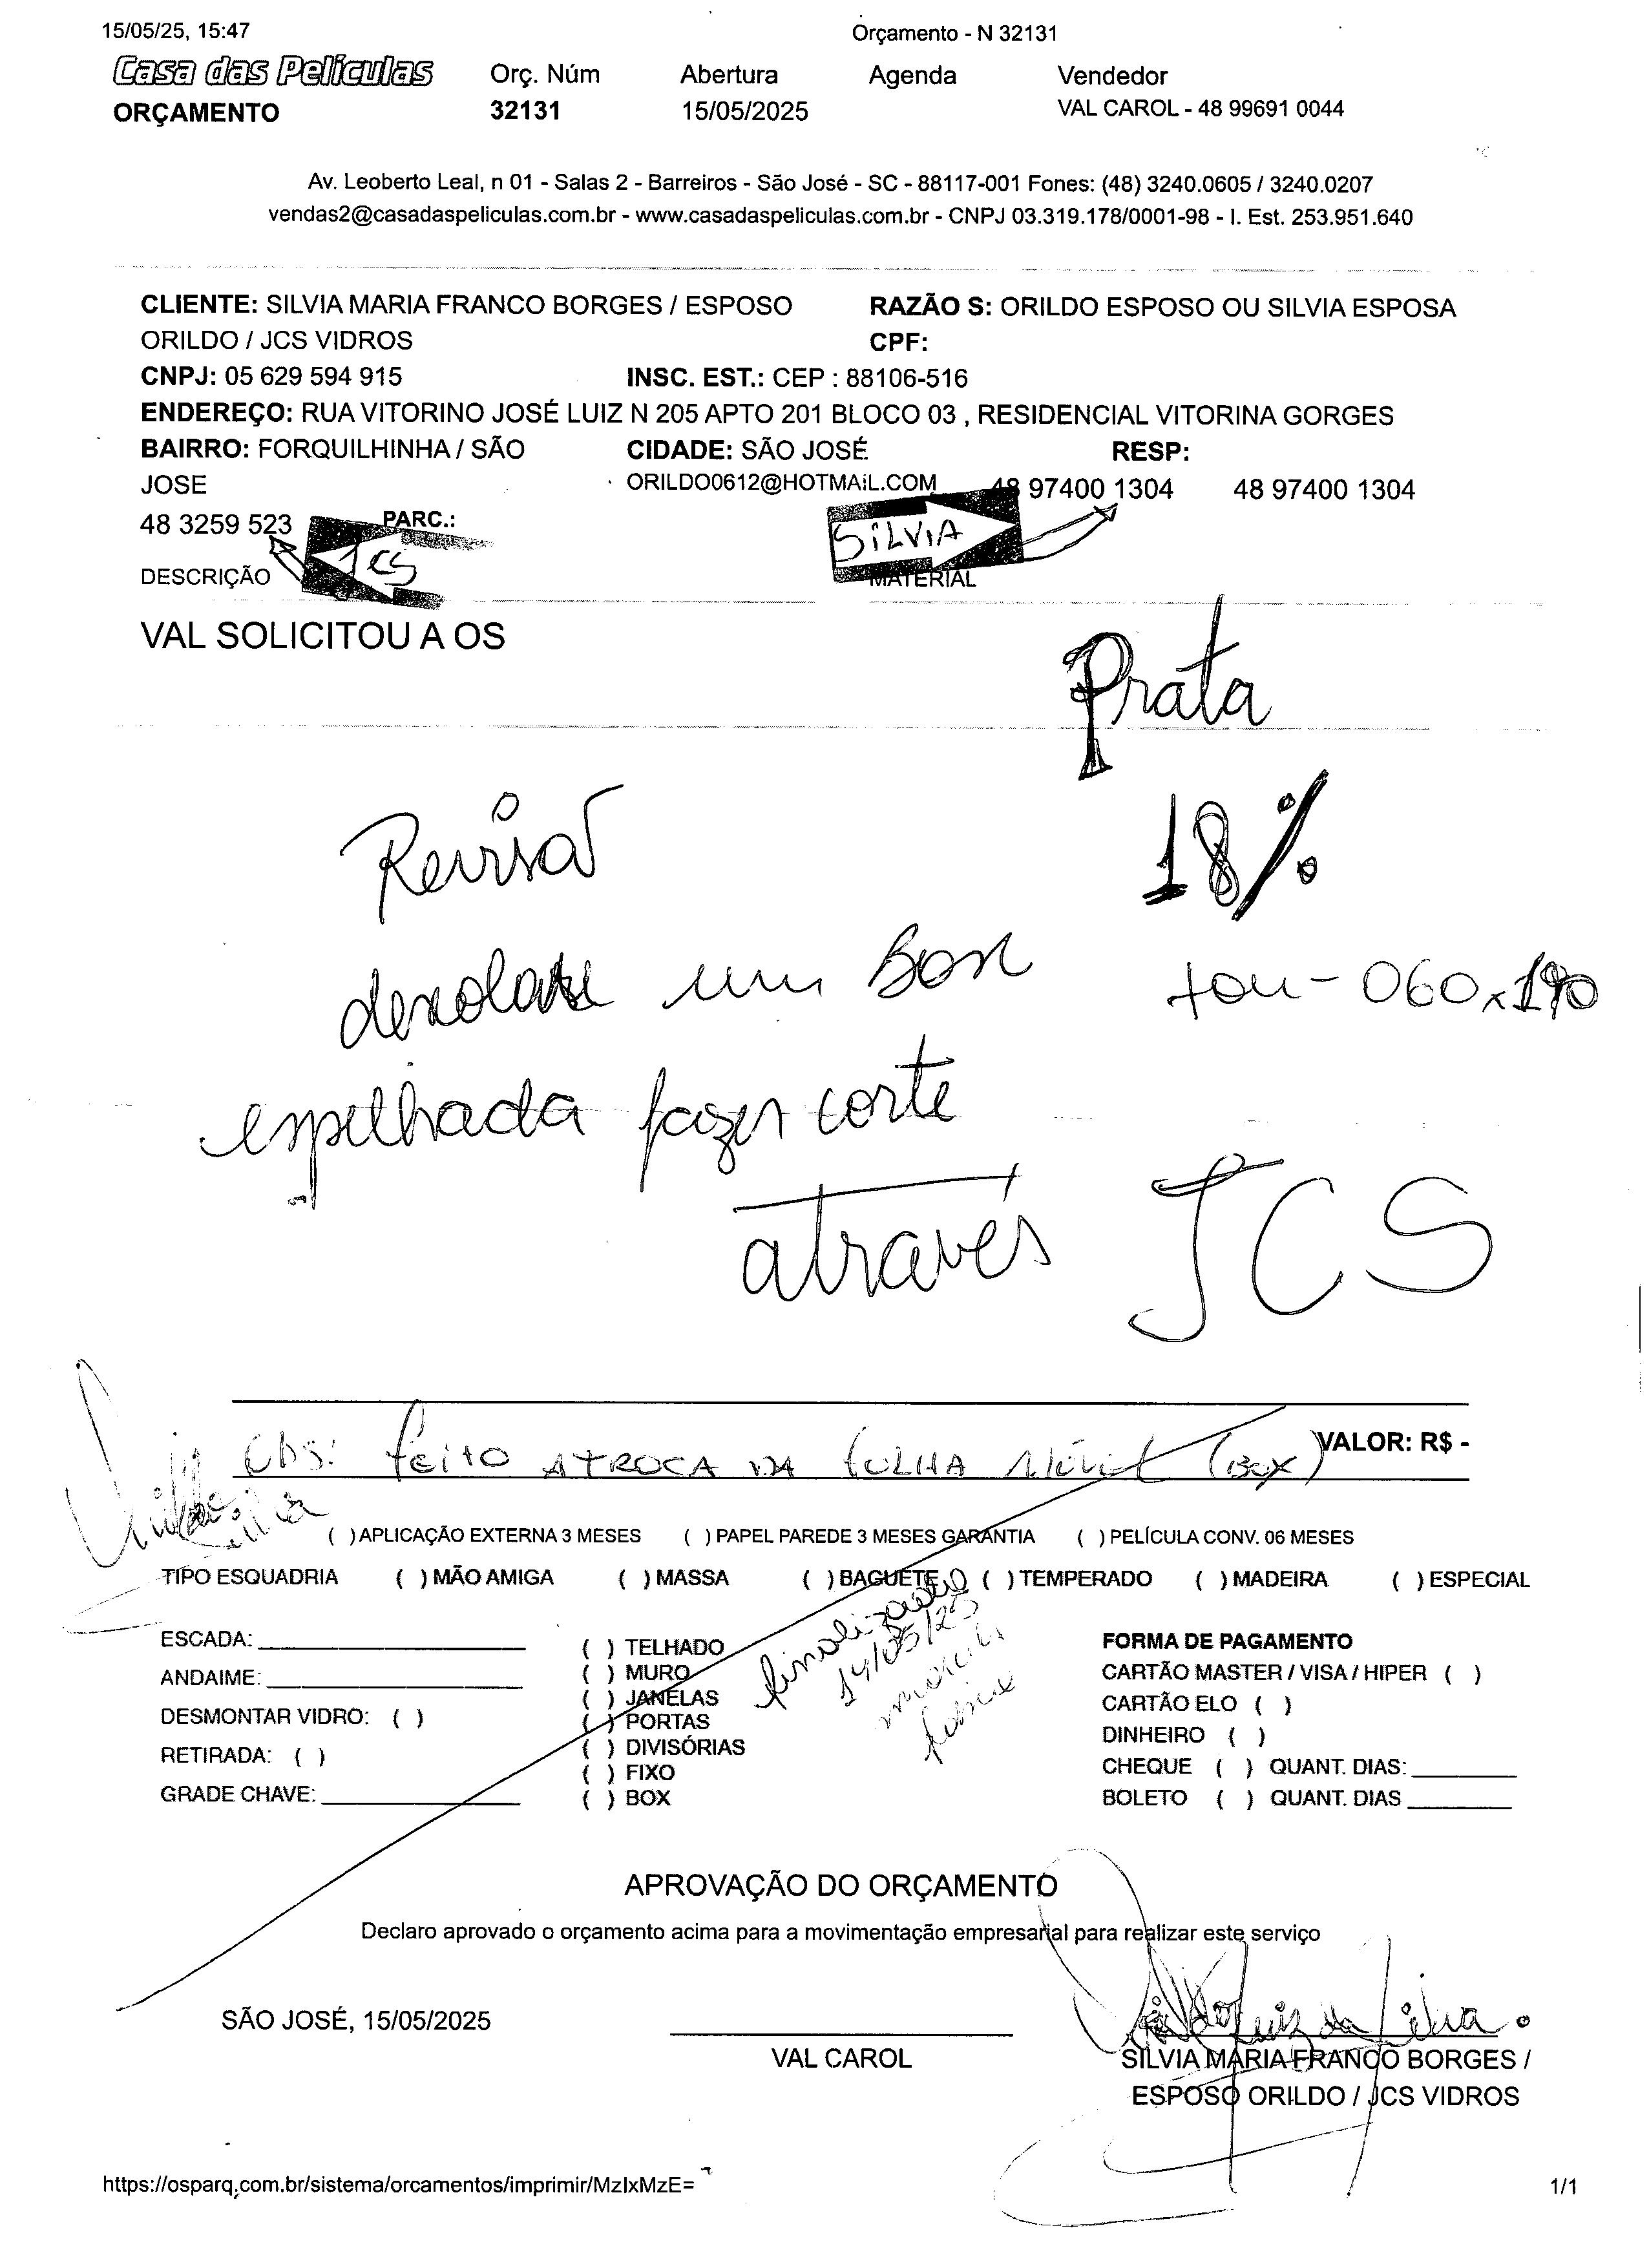 15/05/25, 15:47 Orçamento - N 32131
Casa das Películas Orç. Núm Abertura Agenda Vendedor
ORÇAMENTO 32131 15/05/2025 VAL CAROL - 48 99691 0044
Av. Leoberto Leal, n 01 - Salas 2 - Barreiros - São José - SC - 88117-001 Fones: (48) 3240.0605 / 3240.0207
vendas2@casadaspeliculas.com.br - www.casadaspeliculas.com.br - CNPJ 03.319.178/0001-98 - I. Est. 253.951.640
CLIENTE: SILVIA MARIA FRANCO BORGES / ESPOSO RAZÃO S: ORILDO ESPOSO OU SILVIA ESPOSA
ORILDO / JCS VIDROS CPF:
CNPJ: 05 629 594 915 INSC. EST.: CEP : 88106-516
ENDEREÇO: RUA VITORINO JOSÉ LUIZ N 205 APTO 201 BLOCO 03 , RESIDENCIAL VITORINA GORGES
BAIRRO: FORQUILHINHA / SÃO CIDADE: SÃO JOSÉ RESP:
JOSE ORILDO0612@HOTMAiL.COM 48 97400 1304 48 97400 1304
48 3259 523 PARC.: SiLVIA
JCS
DESCRIÇÃO MATERIAL
VAL SOLICITOU A OS
Prata
Revisar 18%
um Box 060x190
espelhada fazer corte
através JCS
Obs: feito A TROCA DA FOLHA MÓVEL (BOX) VALOR: R$ -
( ) APLICAÇÃO EXTERNA 3 MESES ( ) PAPEL PAREDE 3 MESES GARANTIA ( ) PELÍCULA CONV. 06 MESES
TIPO ESQUADRIA ( ) MÃO AMIGA ( ) MASSA ( ) BAGUETE ( ) TEMPERADO ( ) MADEIRA ( ) ESPECIAL
finalizado
ESCADA: ( ) TELHADO FORMA DE PAGAMENTO
ANDAIME: ( ) MURO CARTÃO MASTER / VISA / HIPER ( )
( ) JANELAS CARTÃO ELO ( )
DESMONTAR VIDRO: ( ) ( ) PORTAS DINHEIRO ( )
RETIRADA: ( ) ( ) DIVISÓRIAS
( ) FIXO CHEQUE ( ) QUANT. DIAS:
GRADE CHAVE: ( ) BOX BOLETO ( ) QUANT. DIAS
APROVAÇÃO DO ORÇAMENTO
Declaro aprovado o orçamento acima para a movimentação empresarial para realizar este serviço
SÃO JOSÉ, 15/05/2025
VAL CAROL SILVIA MARIA FRANCO BORGES /
ESPOSO ORILDO / JCS VIDROS
https://osparq.com.br/sistema/orcamentos/imprimir/MzIxMzE= 1/1